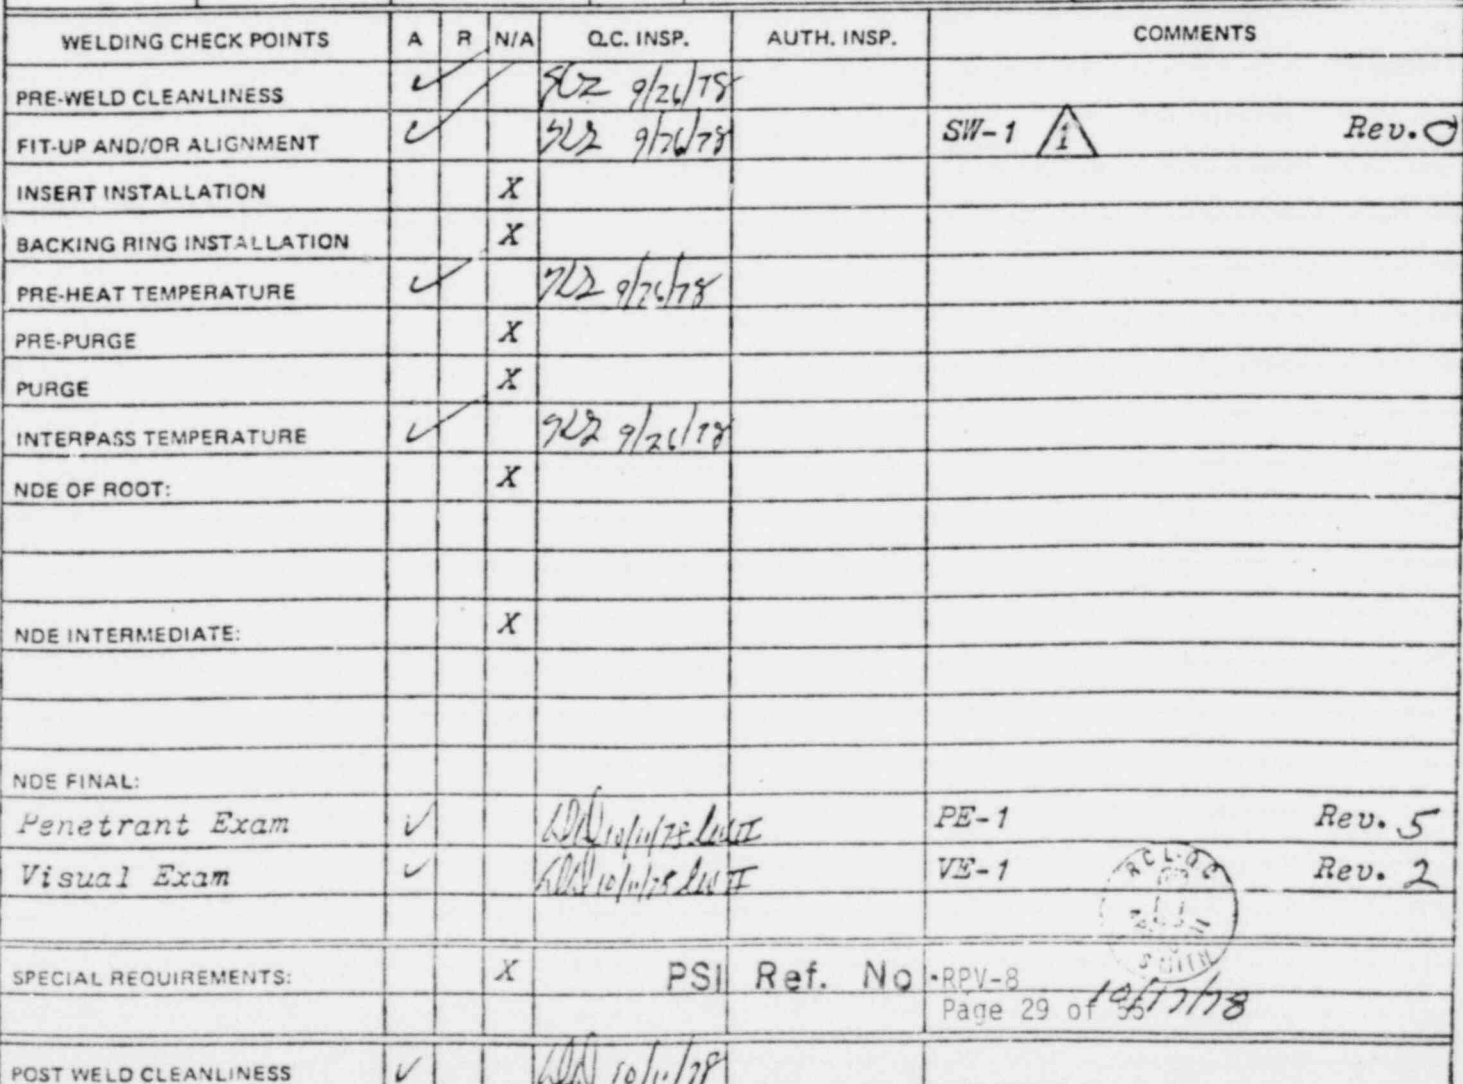 WELDING CHECK POINTS A R N/A Q.C. INSP. AUTH. INSP. COMMENTS
PRE-WELD CLEANLINESS ✓ 9/26/78
FIT-UP AND/OR ALIGNMENT ✓ 9/26/78 SW-1 1 Rev. 0
INSERT INSTALLATION X
BACKING RING INSTALLATION X
PRE-HEAT TEMPERATURE ✓ 9/26/78
PRE-PURGE X
PURGE X
INTERPASS TEMPERATURE ✓ 9/26/78
NDE OF ROOT: X
NDE INTERMEDIATE: X
NDE FINAL:
Penetrant Exam ✓ 10/11/78 Lev II PE-1 Rev. 5
Visual Exam ✓ 10/11/78 Lev II VE-1 Rev. 2
RCL-QC
SMITH
SPECIAL REQUIREMENTS: X PSI Ref. No. RPV-8
Page 29 of 10/17/78
POST WELD CLEANLINESS ✓ 10/11/78